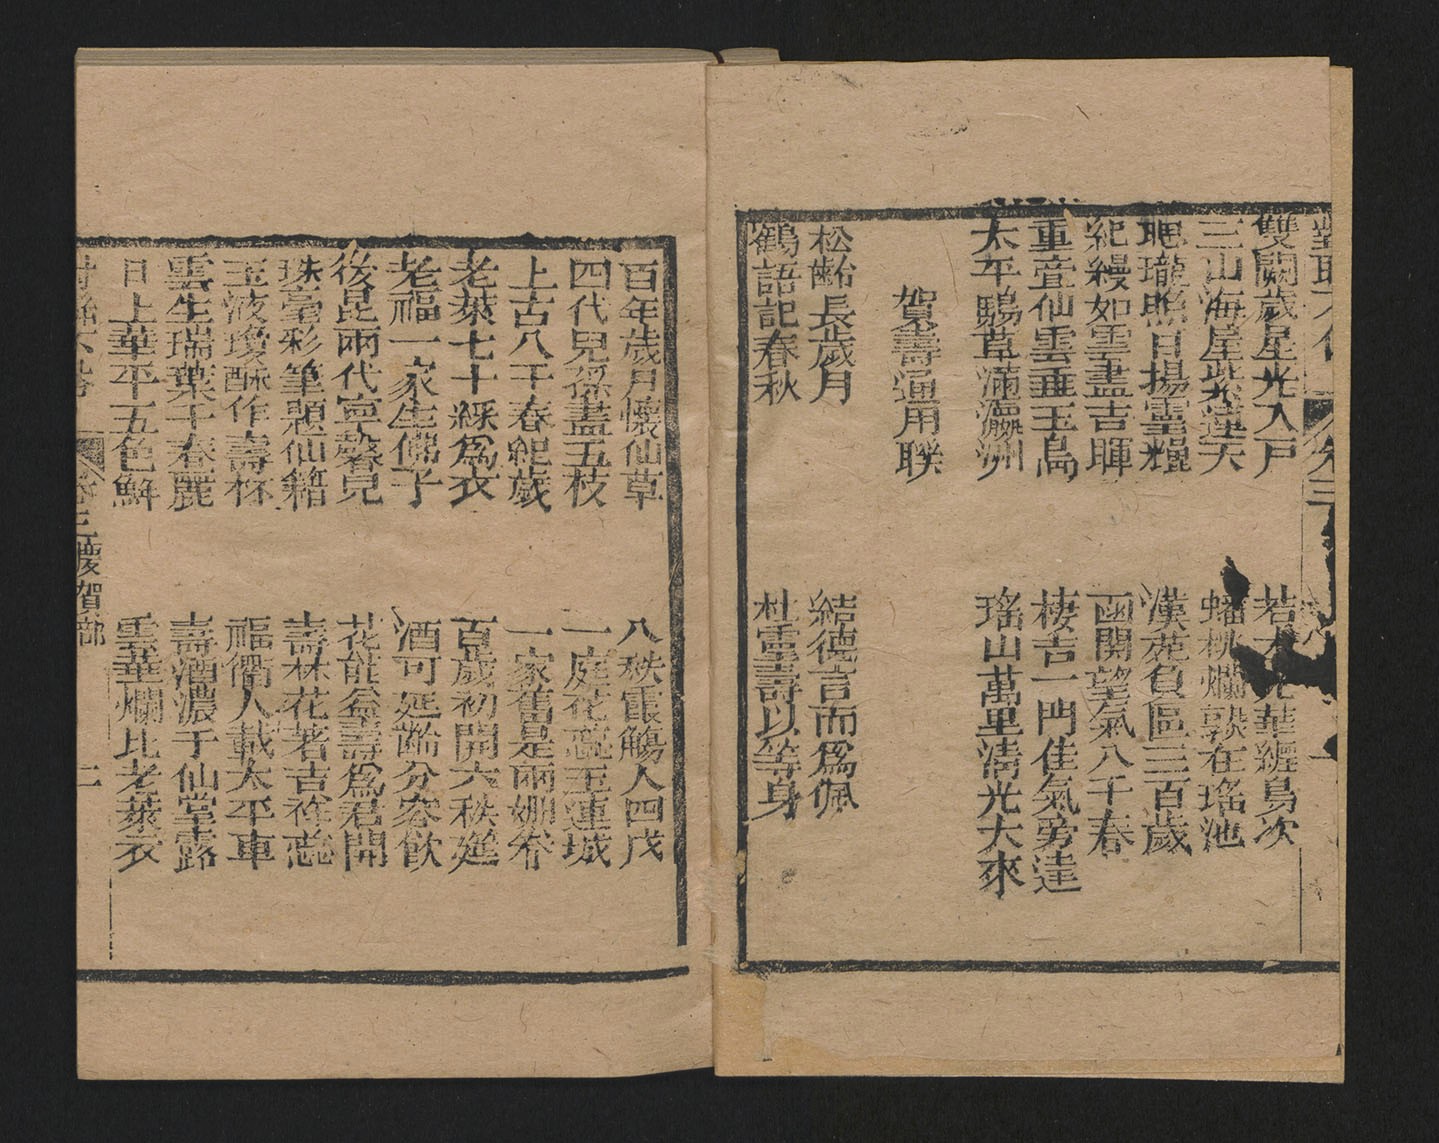 雙闕歲星光入戶
若木光華纏鳥次
三山海屋紫蓮天
蟠桃爛熟在瑤池
瓏照日揚靈糧
漢苑負區三百歲
紀縵如雲盡吉暉
函開望氣八千春
重壹仙雲垂玉島
棲吉一門佳氣旁達
太平鶴草滿瀛洲
瑤山萬里清光大來
賀壽通用聯
松齡長歲月
結德言而為佩
鶴語記春秋
杜靈壽以等身
百年歲月懷仙草
八秩霞觴人四戊
四代兒孫盡五枝
一庭花蕊玉連城
上古八千春紀歲
一家舊是兩
老萊七十綵為衣
百歲初開六秩筵
老福一家生佛子
酒可延齡分客飲
後昆兩代寧馨兒
花能益壽為君開
珠毫彩筆題仙籍
壽林花著吉祥蕊
玉液瓊酥作壽杯
福衢人載太平車
雲生瑞葉千春麗
壽酒濃于仙堂露
日上華平五色鮮
雲華爛比老萊衣
卷三慶賀部 二